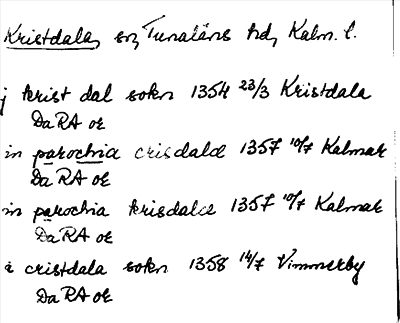 Kristdala, sn, Tunaläns hd, Kalm. l.
j krist dal sokn 1354 23/3 Kristdala
DaRA or
in parochia crisdald 1357 10/7 Kalmar
DaRA or
in parochia krisdald 1357 10/7 Kalmar
DaRA or
i cristdala sokn 1358 14/7 Vimmerby
DaRA or